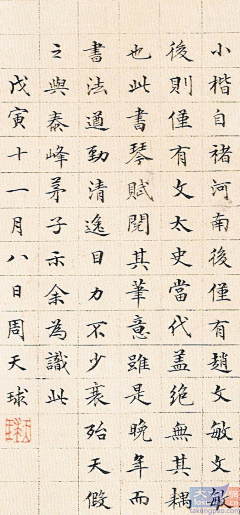 小楷自褚河南後僅有趙文敏文敏
後則僅有文太史當代蓋絕無其耦
也此書琴賦閱其筆意雖是晚年而
書法遒勁清逸目力不少衰殆天假
之與泰峰茅子示余為識此
戊寅十一月八日周天球